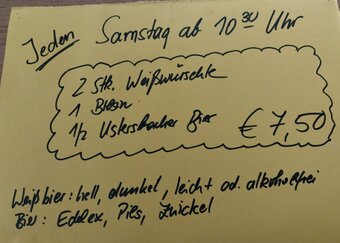 Jeden Samstag ab 10 30 Uhr
2 Stk. Weißwürschte
1 Brezn
1/2 Ustersbacher Bier € 7,50
Weißbier: hell, dunkel, leicht od. alkoholfrei
Bier: Edelex, Pils, Zwickel